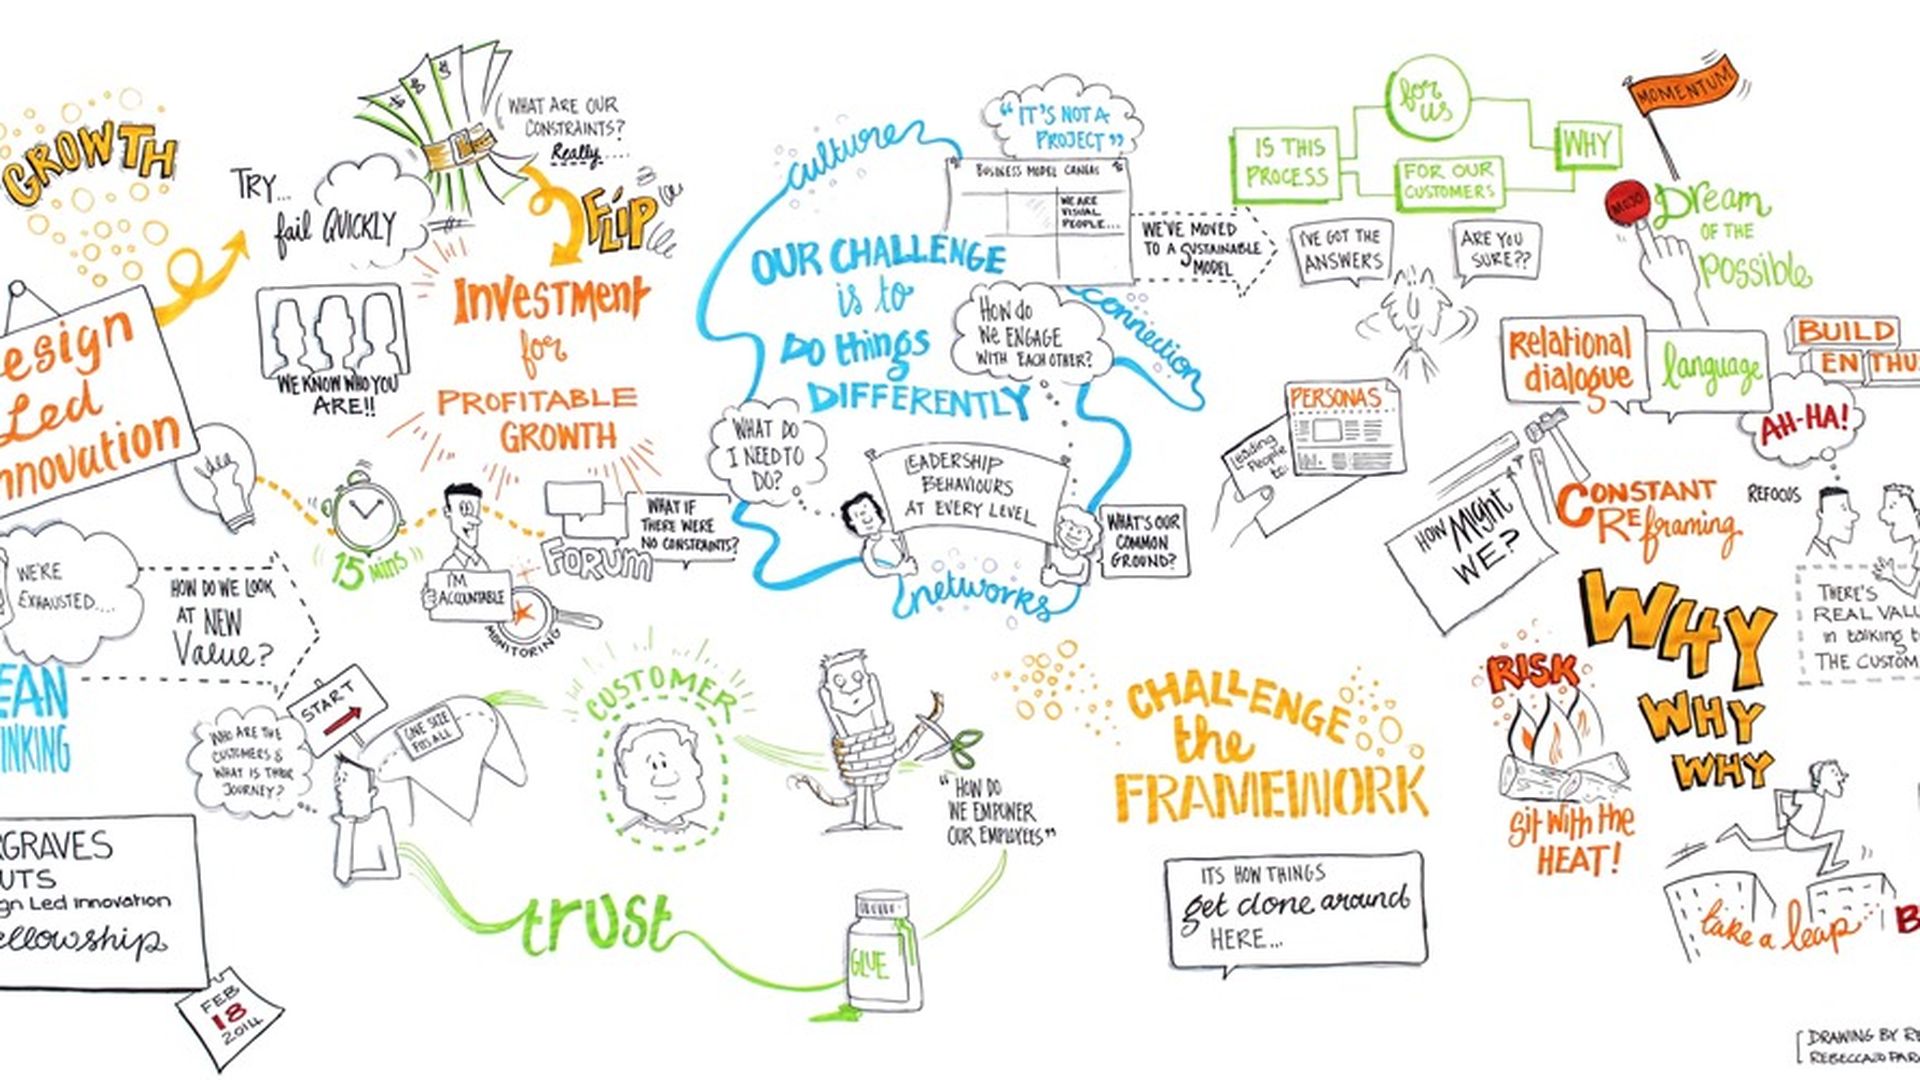 GROWTH
esign
Led
nnovation
Idea
TRY...
fail QUICKLY
WHAT ARE OUR
CONSTRAINTS?
Really....
FLIP
WE KNOW WHO YOU
ARE!!
INVESTMENT
for
PROFITABLE
GROWTH
15 mins
I'M
ACCOUNTABLE
MONITORING
FORUM
WHAT IF
THERE WERE
NO CONSTRAINTS?
WE'RE
EXHAUSTED....
HOW DO WE LOOK
AT NEW
Value?
EAN
INKING
START
WHO ARE THE
CUSTOMERS &
WHAT IS THEIR
JOURNEY?
ONE SIZE
FITS ALL
RGRAVES
UTS
gn Led innovation
ellowship
FEB
18
2014
CUSTOMER
trust
GLUE
"HOW DO
WE EMPOWER
OUR EMPLOYEES"
culture
"IT'S NOT A
PROJECT"
BUSINESS MODEL CANVAS
WE ARE
VISUAL
PEOPLE...
WE'VE MOVED
TO A SUSTAINABLE
MODEL
OUR CHALLENGE
is to
Do things
DIFFERENTLY
HOW do
WE ENGAGE
WITH EACH OTHER?
connection
WHAT DO
I NEED TO
DO?
LEADERSHIP
BEHAVIOURS
AT EVERY LEVEL
WHAT'S OUR
COMMON
GROUND?
networks
IS THIS
PROCESS
for
us
FOR OUR
CUSTOMERS
WHY
I'VE GOT THE
ANSWERS
ARE YOU
SURE??
MOMENTUM
MOJO
Dream
OF THE
Possible
Relational
dialogue
language
BUILD
EN THU
AH-HA!
PERSONAS
Leading
People
to:
HOW Might
WE?
CONSTANT
REframing
REFOCUS
WHY
WHY
WHY
THERE'S
REAL VALU
in talking t
THE CUSTOM
RISK
Sit With the
HEAT!
CHALLENGE
the
FRAMEWORK
ITS HOW THINGS
get done around
HERE...
take a leap
B
DRAWING BY RE
REBECCAJO PAR